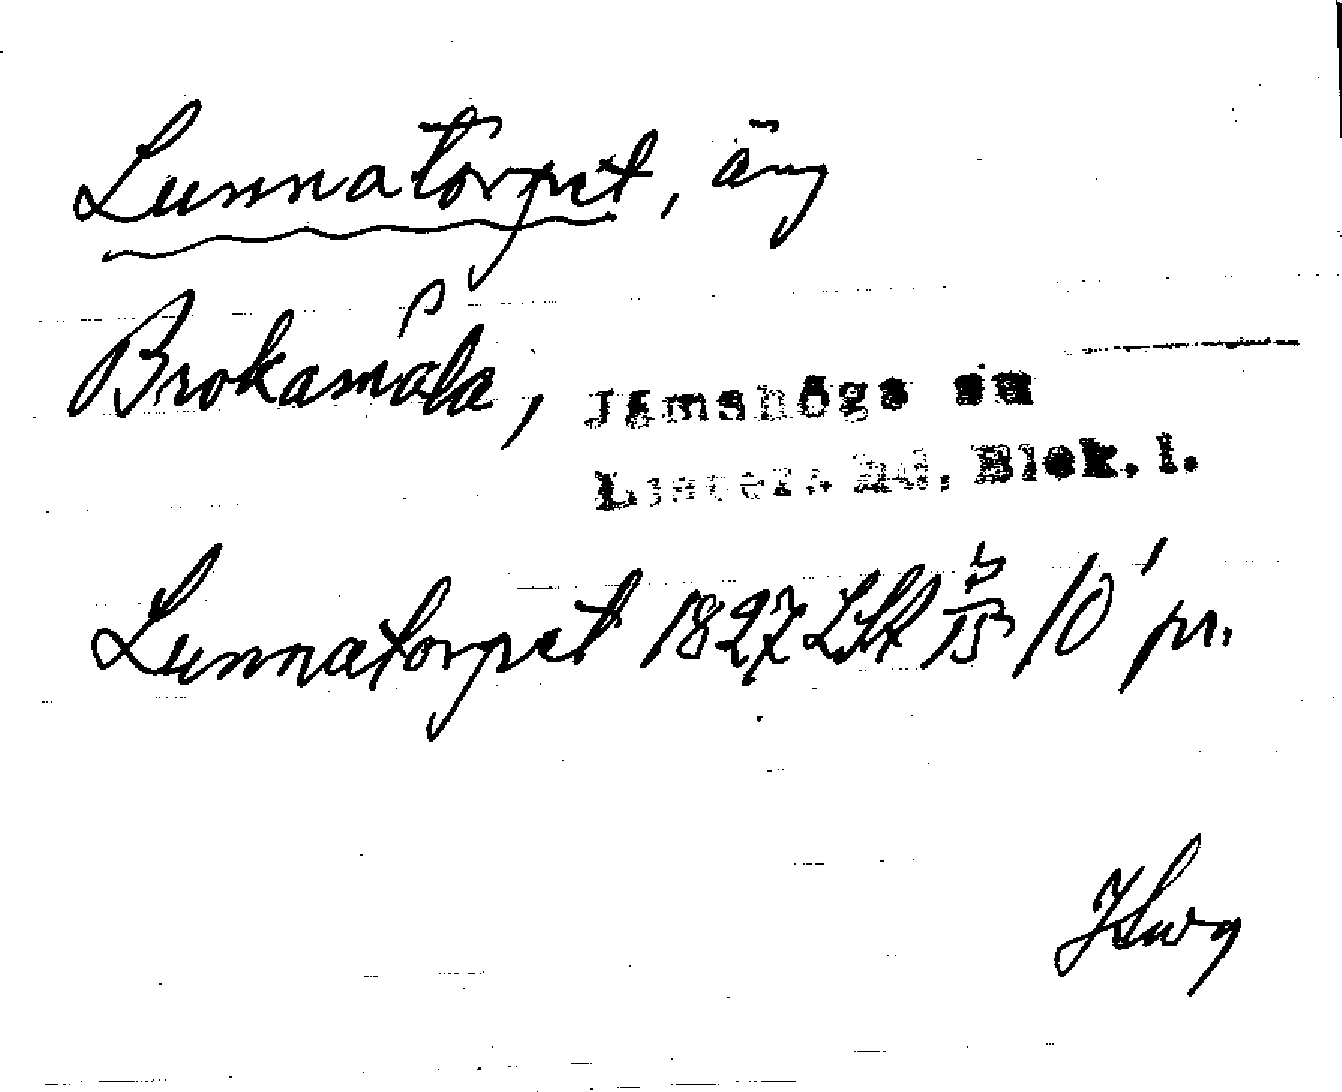 Lunnatorpet, äng
Brokamåla, Jämshögs sn
Listers hd, Blek. l.
Lunnatorpet 1827 LSA 10' pr.